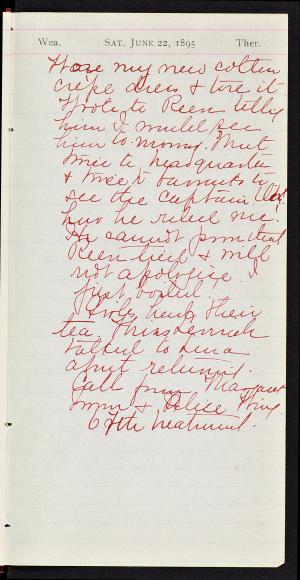 Wea. SAT. JUNE 22, 1895 Ther.
Wore my new cotton
crêpe dress & tore it.
Wrote to Reen telling
him I would see
him to-morrow. Went
twice to headquarters
& twice to barracks to
see the Captain.
How he riled me!
He cannot prove that
Reen lied & will
not apologise. I
just boiled.
here their
tea. Miss
talked to
about returning.
Call from Margaret
& Alice King.
67th treatment.